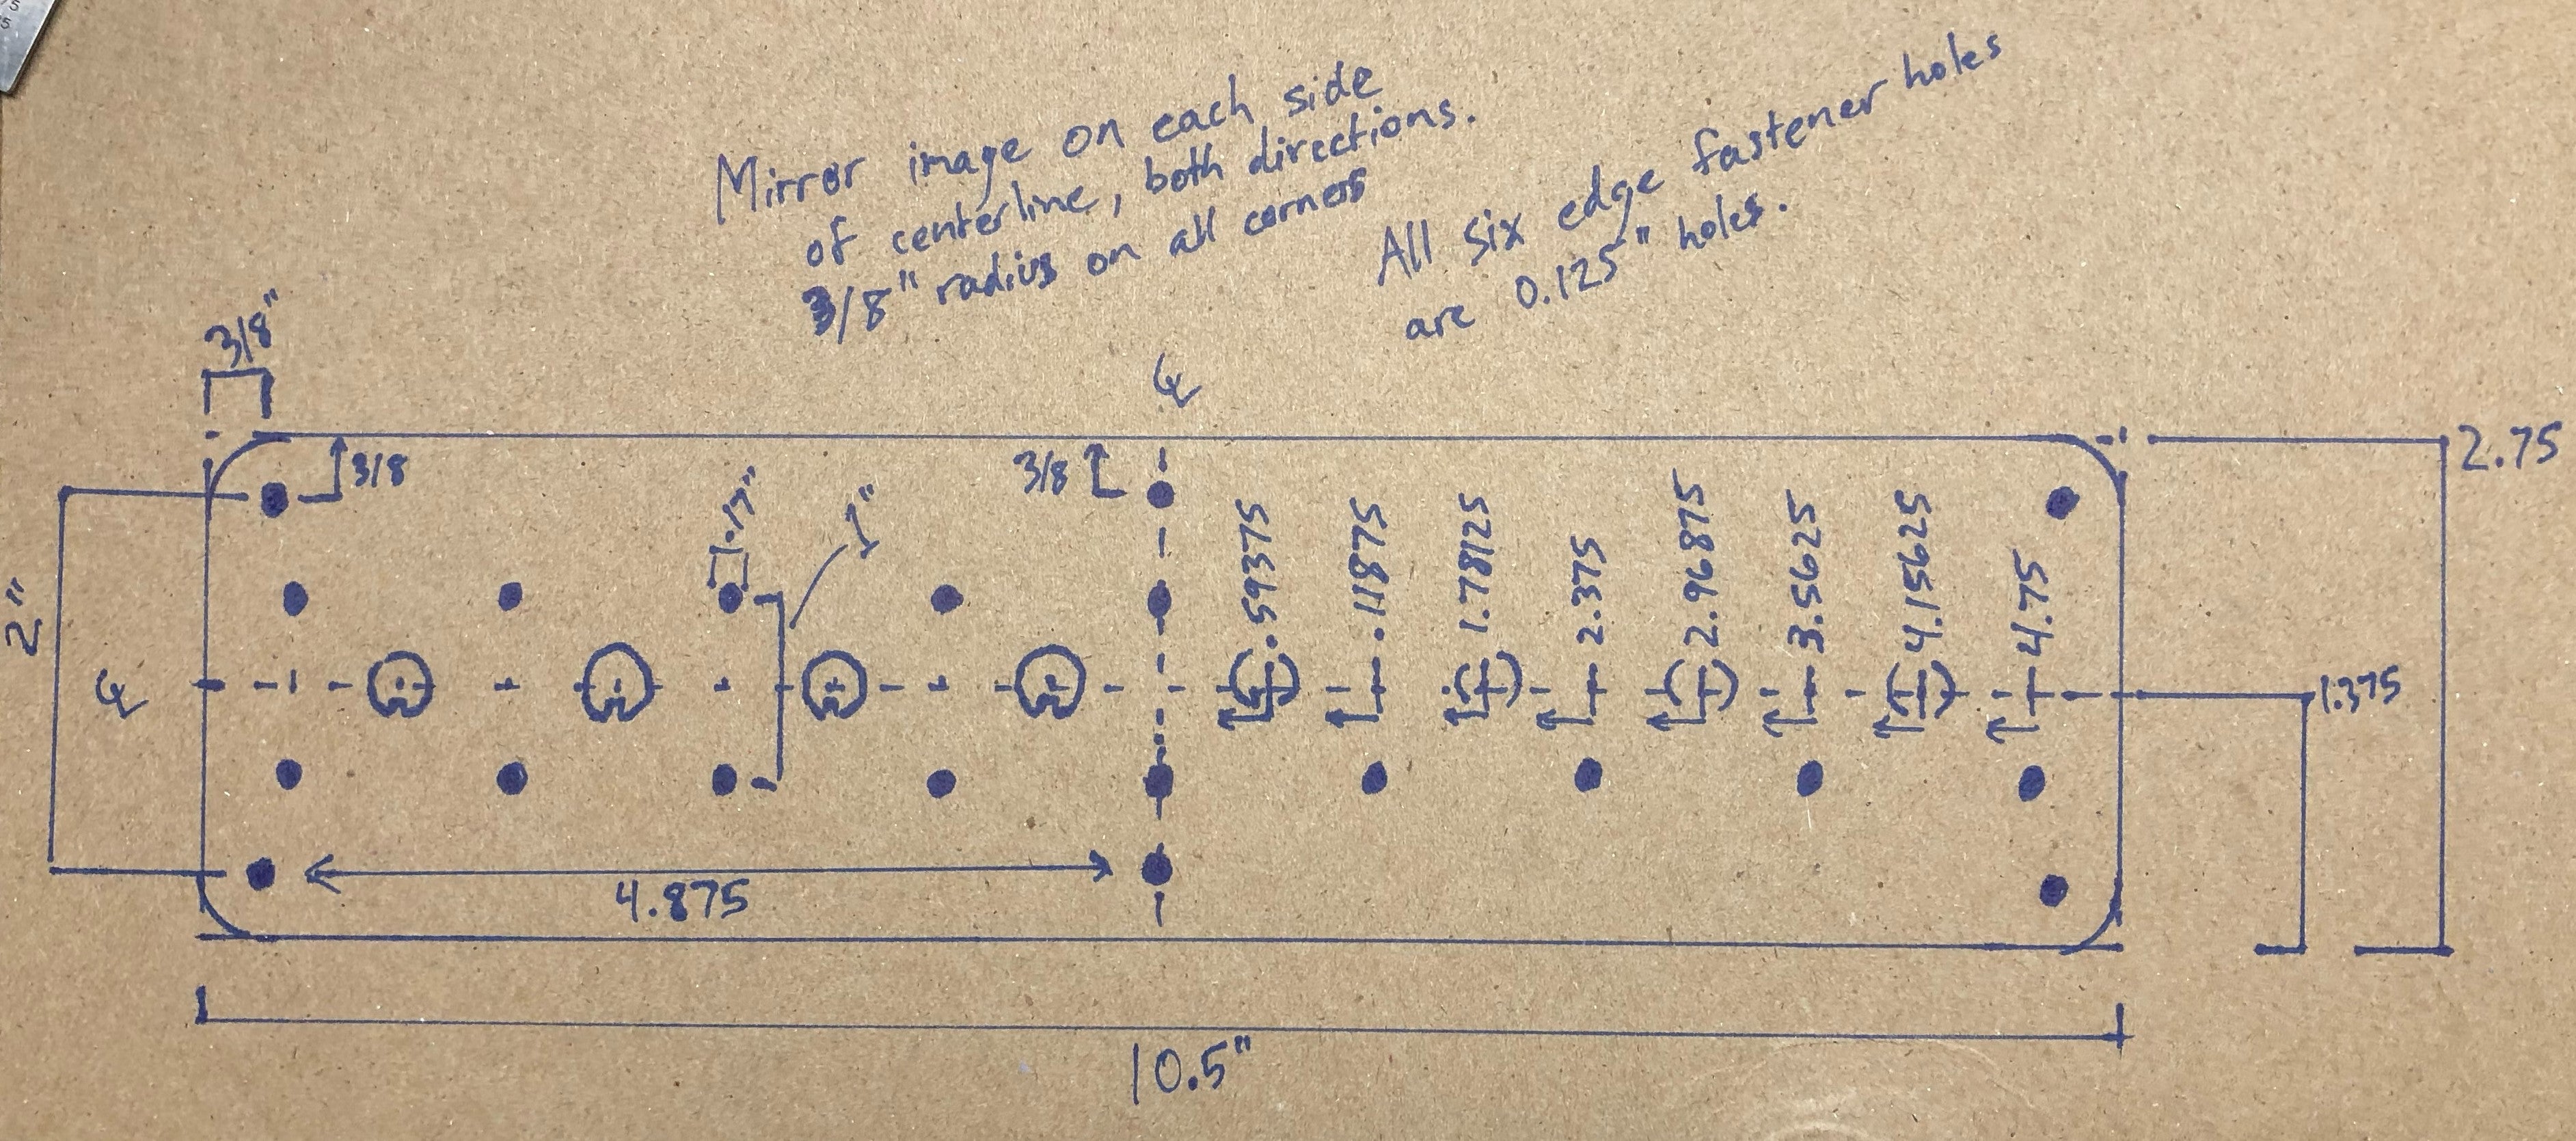 Mirror image on each side
of centerline, both directions.
3/8" radius on all corners
All six edge fastener holes
are 0.125" holes.
3/8"
℄
2.75
3/8
3/8
.17"
1"
.59375
.11875
1.78125
2.375
2.96875
3.5625
4.15625
4.75
2"
℄
1.375
4.875
10.5"